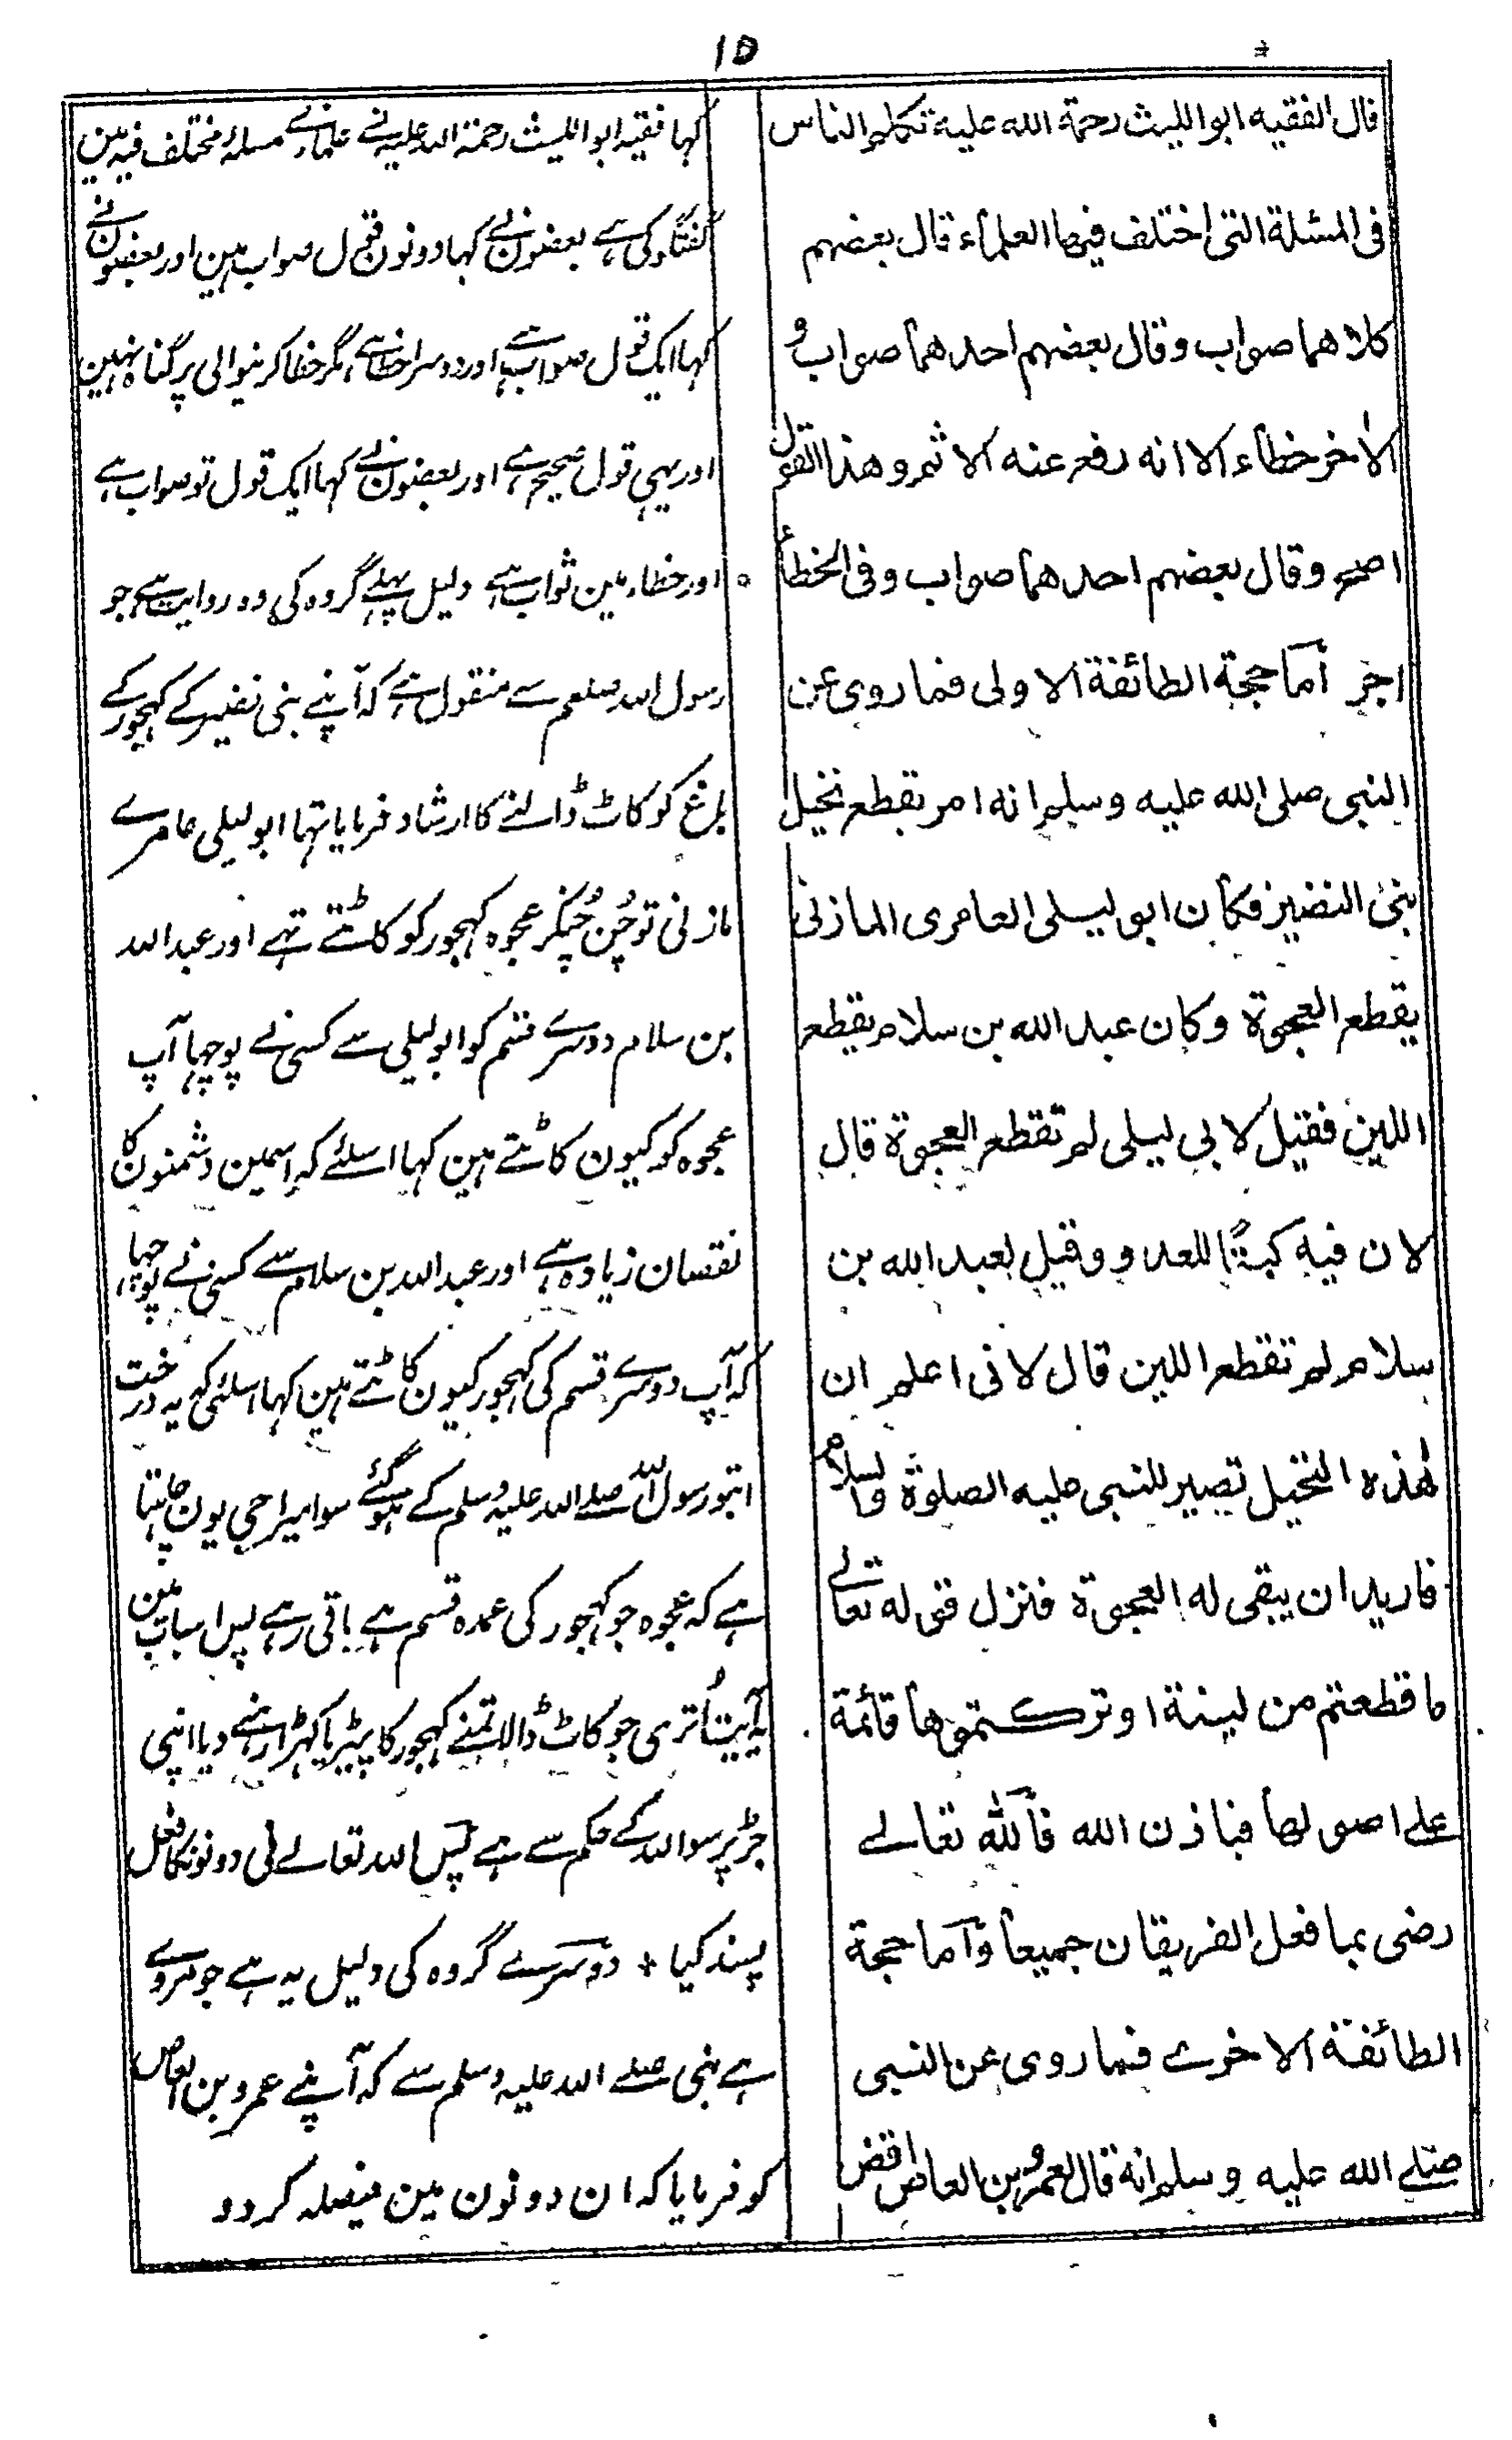 ۱۵
قال الفقيه ابو الليث رحمة الله عليه تكلم الناس
فى المسئلة التى اختلف فيها العلماء قال بعضهم
كلاهما صواب وقال بعضهم احدهما صواب و
الاخر خطاء الا انه رفع عنه الاثم وهذا القول
اصح وقال بعضهم احدهما صواب وفى الخطأ
اجر اما حجة الطائفة الاولى فما روى عن
النبى صلى الله عليه وسلم انه امر بقطع نخيل
بنى النضير فكان ابو ليلى العامرى المازنى
يقطع العجوة وكان عبد الله بن سلام يقطع
اللين فقيل لابى ليلى لم تقطع العجوة قال
لان فيه كبتًا للعدو وقيل لعبد الله بن
سلام لم تقطع اللين قال لانى اعلم ان
هذه النخيل تصير للنبى عليه الصلوة والسلام
فاريد ان يبقى له العجوة فنزل قوله تعالے
ما قطعتم من لينة او تركتموها قائمة
علے اصولها فباذن الله فالله تعالے
رضى بما فعل الفريقان جميعا واما حجة
الطائفة الاخرے فما روى عن النبى
صلے الله عليه وسلم انه قال لعمرو بن العاص اقض
کہا فقیہ ابو اللیث رحمۃ اللہ علیہ نے علماء نے مسئلہ مختلف فیہ مین
گفتگو کی ہے بعضون نے کہا دونون قول صواب ہین اور بعضون نے
کہا ایک قول صواب ہے اور دوسرا خطا ہے مگر خطا کرنیوالی پر گناہ نہین
اور یہی قول صحیح ہے اور بعضون نے کہا ایک قول تو صواب ہے
اور خطاء مین ثواب ہے دلیل پہلے گروہ کی وہ روایت ہے جو
رسول اللہ صلعم سے منقول ہے کہ آپنے بنی نضیر کے کہجور کے
باغ کو کاٹ ڈالنے کا ارشاد فرمایا تہا ابو لیلی عامرے
مازنی تو چُن چُنکر عجوہ کہجور کو کاٹتے تہے اور عبد اللہ
بن سلام دوسرے قسم کو ابو لیلی سے کسی نے پوچہا آپ
عجوہ کو کیون کاٹتے ہین کہا اسلئے کہ اسمین دشمنون کا
نقسان زیادہ ہے اور عبد اللہ بن سلام سے کسی نے پوچہا
کہ آپ دوسرے قسم کی کہجور کیون کاٹتے ہین کہا اسلئی کہ یہ درخت
اتبو رسول اللہ صلے اللہ علیہ وسلم کے ہو گئے سو میرا جی یون چاہتا
ہے کہ عجوہ جو کہجور کی عمدہ قسم ہے باقی رہے پس اس باب مین
یہ آیت اُتری جو کاٹ ڈالا تمنے کہجور کا پیڑ یا کہڑا رہنے دیا اپنی
جڑ پر سو اللہ کے حکم سے ہے پس اللہ تعالے نے دونونکا فعل
پسند کیا + دوسرے گروہ کی دلیل یہ ہے جو مروے
ہے نبی صلے اللہ علیہ وسلم سے کہ آپنے عمرو بن العاص
کو فرمایا کہ ان دونون مین فیصلہ کر دو